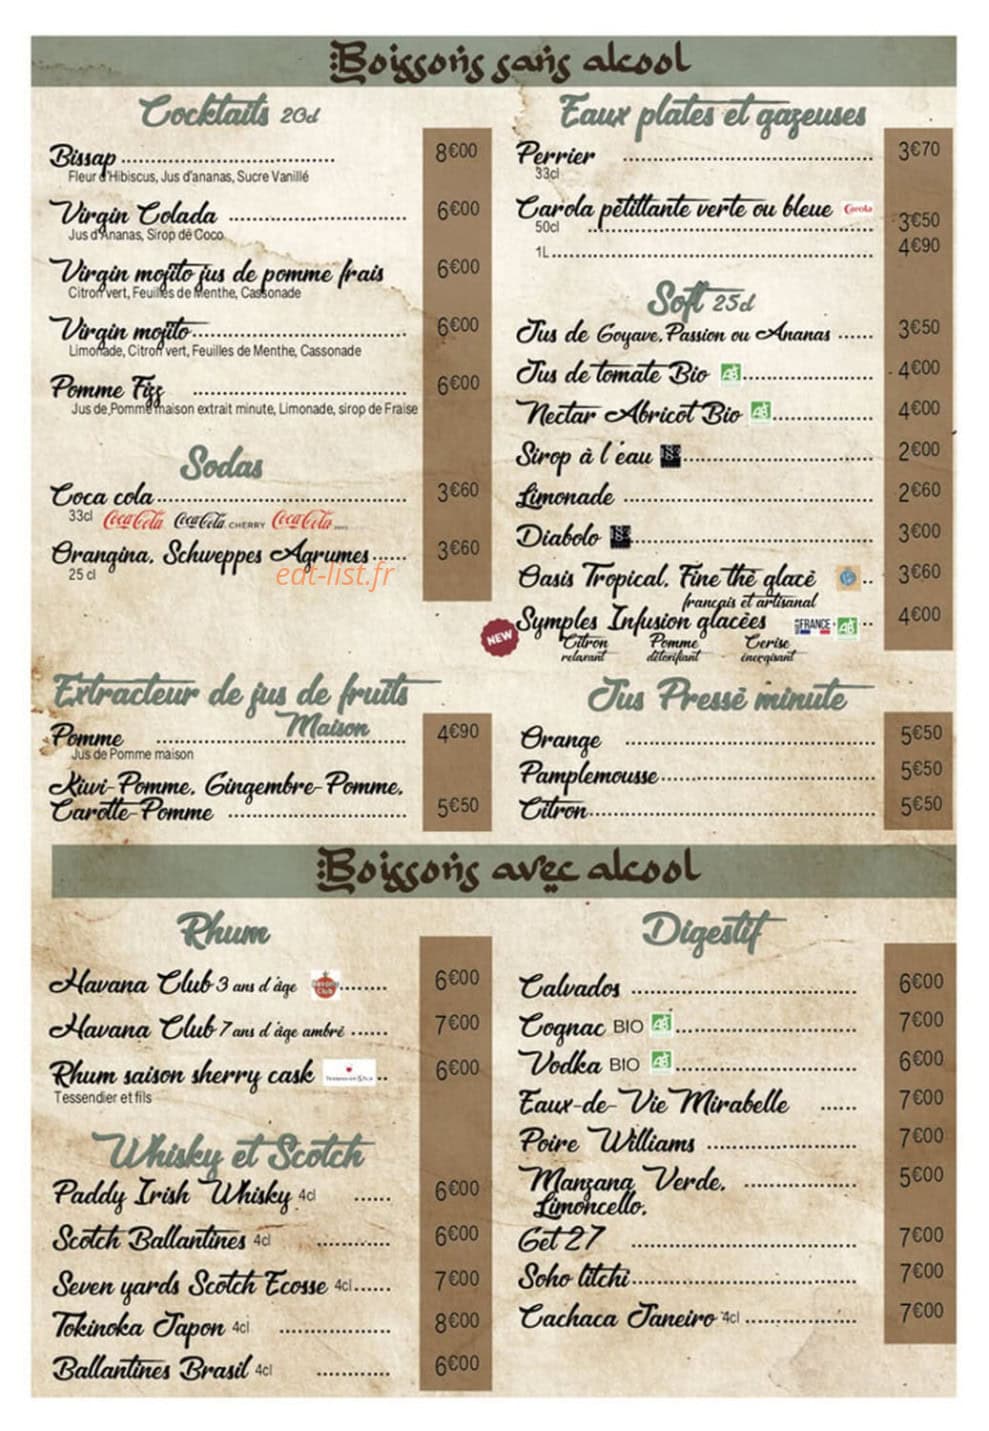 Boissons sans alcool
Cocktails 20cl
Bissap ........ 8€00
Fleur d'Hibiscus, Jus d'ananas, Sucre Vanillé
Virgin Colada ........ 6€00
Jus d'Ananas, Sirop de Coco
Virgin mojito jus de pomme frais 6€00
Citron vert, Feuilles de Menthe, Cassonade
Virgin mojito ........ 6€00
Limonade, Citron vert, Feuilles de Menthe, Cassonade
Pomme Fizz ........ 6€00
Jus de Pomme maison extrait minute, Limonade, sirop de Fraise
Sodas
Coca cola ........ 3€60
33cl Coca-Cola Coca-Cola CHERRY Coca-Cola
Orangina, Schweppes Agrumes ...... 3€60
25 cl
eat-list.fr
Eaux plates et gazeuses
Perrier ........ 3€70
33cl
Carola pétillante verte ou bleue Carola
50cl ........ 3€50
1L ........ 4€90
Soft 25cl
Jus de Goyave, Passion ou Ananas ...... 3€50
Jus de tomate Bio AB ........ 4€00
Nectar Abricot Bio AB ........ 4€00
Sirop à l'eau ........ 2€00
Limonade ........ 2€60
Diabolo ........ 3€00
Oasis Tropical, Fine thé glacé .. 3€60
français et artisanal
NEW Symples Infusion glacées FRANCE AB .. 4€00
Citron Pomme Cerise
relaxant détoxifiant énergisant
Extracteur de jus de fruits
Maison
Pomme ........ 4€90
Jus de Pomme maison
Kiwi-Pomme, Gingembre-Pomme,
Carotte-Pomme ........ 5€50
Jus Pressé minute
Orange ........ 5€50
Pamplemousse ........ 5€50
Citron ........ 5€50
Boissons avec alcool
Rhum
Havana Club 3 ans d'âge ........ 6€00
Havana Club 7 ans d'âge ambré ...... 7€00
Rhum saison sherry cask .. 6€00
Tessendier et fils
Whisky et Scotch
Paddy Irish Whisky 4cl ...... 6€00
Scotch Ballantines 4cl ........ 6€00
Seven yards Scotch Ecosse 4cl ...... 7€00
Tokinoka Japon 4cl ........ 8€00
Ballantines Brasil 4cl ........ 6€00
Digestif
Calvados ........ 6€00
Cognac BIO AB ........ 7€00
Vodka BIO AB ........ 6€00
Eaux-de-Vie Mirabelle ...... 7€00
Poire Williams ........ 7€00
Manzana Verde, ........ 5€00
Limoncello,
Get 27 ........ 7€00
Soho litchi ........ 7€00
Cachaca Janeiro 4cl ........ 7€00